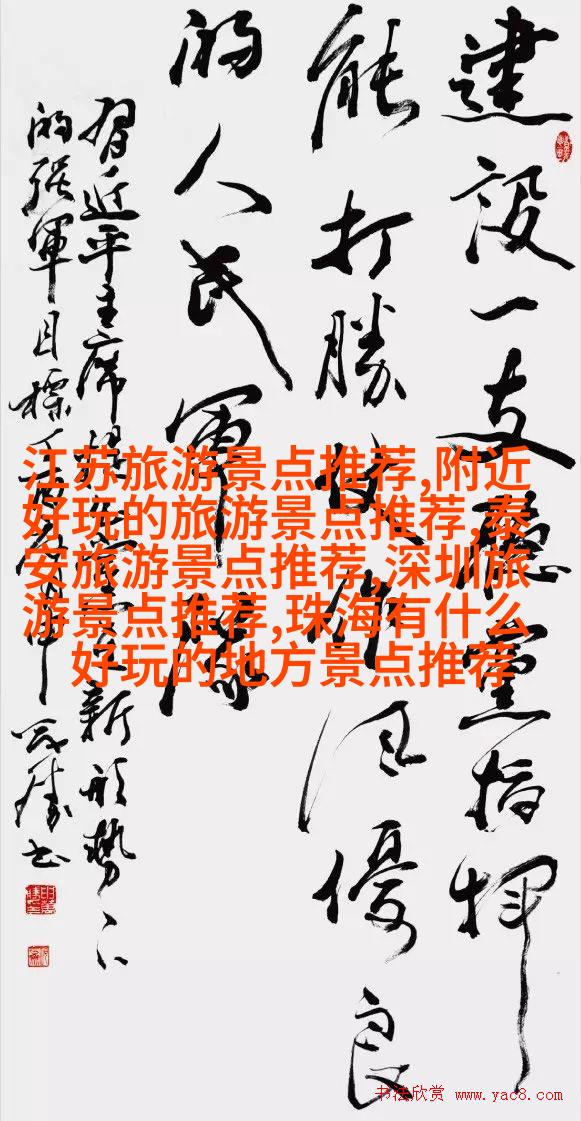 建设一支听党指挥
能打勝仗作风優良
的人民軍隊
習近平主席提出在新形势下
的强軍目標
江苏旅游景点推荐,附近
好玩的旅游景点推荐,泰
安旅游景点推荐,深圳旅
游景点推荐,珠海有什么
好玩的地方景点推荐
书法欣赏 www.yac8.com